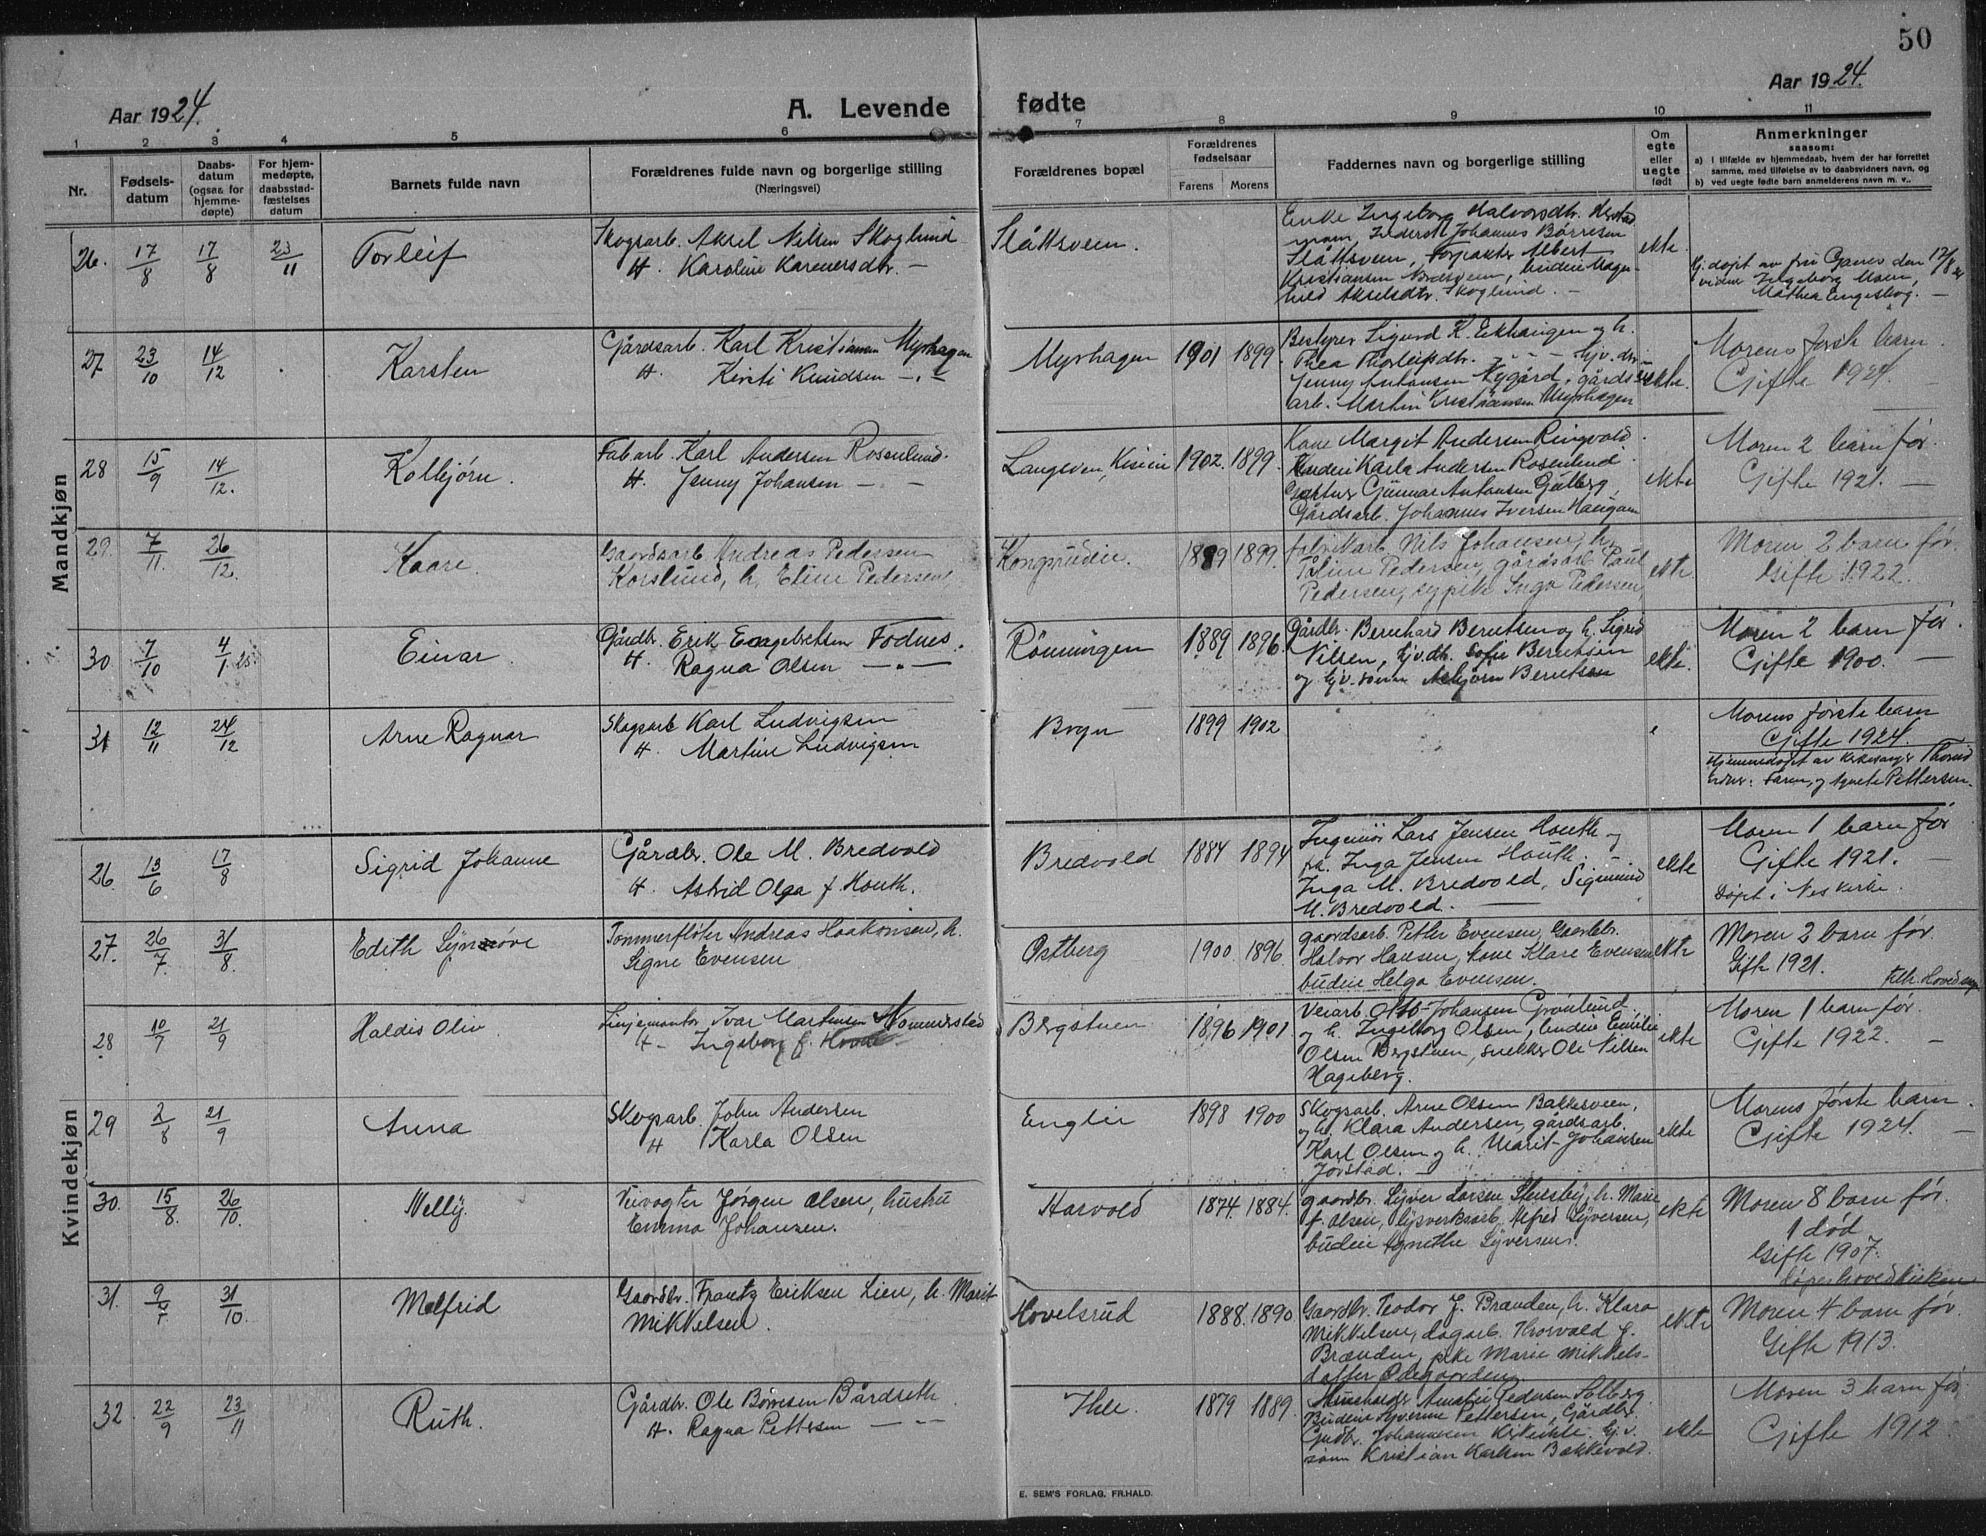 50
Aar 1924.
A. Levende fødte
Aar 1924.
1 2 3 4 5 6 7 8 9 10 11
Nr.
Fødsels-
datum
Daabs-
datum
(ogsaa for
hjemme-
døpte)
For hjem-
medøpte,
daabsstad-
fæstelses
datum
Barnets fulde navn
Forældrenes fulde navn og borgerlige stilling
(Næringsvei)
Forældrenes bopæl
Forældrenes
fødselsaar
Farens Morens
Faddernes navn og borgerlige stilling
Om
egte
eller
uegte
født
Anmerkninger
saasom:
a) i tilfælde av hjemmedaab, hvem der har forrettet
samme, med tilføielse av to daabsvidners navn, og
b) ved uegte fødte barn anmelderens navn m. v.
Mandkjøn
26. 17/8 17/8 23/11 Torleif
Skogsarb. Aksel Nilsen Skoglund
H. Karoline Karenersdtr. —
Slåttsveen.
Enke Ingeborg Halvorsdtr.
Johannes Børresen
Slåttsveen, Forpakter Albert
Kristiansen
Akselsdtr. Skoglund. —
ekte
Hj.døpt av fru den 17/8 24
Ingeborg Moen,
Mathea Engeskog. —
27 23/10 14/12 Karsten
Gårdsarb. Karl Kristiansen Myrhagen
H. Kirsti Knudsen — " —
Myrhagen 1901 1899
Bestyrer Sigurd K. Eekhaugen og h.
Thea Thorleifsdtr. — Hjv. dtr.
Jenny Antonsen Nygård, gårds-
arb. Martin Kristiansen Myrhagen
ekte.
Morens første barn.
Gifte 1924. —
28 15/9 14/12. Kolbjørn.
Fabarb. Karl Andersen Rosenlund.
H. Jenny Johansen — —
Langsven, 1902. 1899.
Kone Margit Andersen Ringvold.
Budeie Karla Andersen Rosenlund
Gunnar Antonsen Gulberg,
Gårdsarb. Johannes Iversen Haugan
ekte
Moren 2 barn før.
Gifte 1921. —
29. 7/11. 26/12. Kaare.
Gaardsarb Andreas Pedersen
Korslund, h. Eline Pedersen,
Kongsrudeie. 1889 1899.
fabrikarb. Nils Johansen, h.
Pedersen, gårdsarb Paul
Pedersen, sypike Inga Pedersen,
ekte.
Moren 2 barn før.
Gifte 1922.
30 7/10 4/1 25 Einar.
Gårdbr. Erik Engebretsen Fodnes.
H. Ragna Olsen — " —
Rönningen 1889 1896.
Gårdbr. Bernhard Berntsen og h. Sigrid
Nilsen, hjv.dtr. Sofie Berntsen
og hjv. sønn Asbjørn Berntsen
ekte.
Moren 2 barn før.
Gifte 1900. —
31 12/11 24/12 Arne Ragnar
Skogsarb Karl Ludvigsen
H. Martine Ludvigsen
Bogn 1899 1902
Morens første barn
Gifte 1924.
Hjemmedøpt av kirkesanger
Faren og Agnete Pettersen.
Kvindekjøn
26. 13/6 17/8 Sigrid Johanne
Gårdbr. Ole M. Bredvold
H. Astrid Olga f. Houth.
Bredvold 1884 1894
Ingeniør Lars Jensen Houth og
fr. Inga Jensen Houth.
Inga M. Bredvold, Sigmund
M. Bredvold. —
ekte
Moren 1 barn før
Gifte 1921. —
Døpt i Nes kirke.
27. 26/7. 31/8. Edith Synnøve
Tømmerfløter Andreas Haakonsen, h.
Signe Evensen
Ostberg 1900. 1896.
gaardsarb Petter Evensen, Gaardbr.
Halvor Hansen, kone Klare Evensen
budeie Helga Evensen.
ekte
Moren 2 barn før.
Gifte 1921.
28 10/7 21/9 Haldis Oliv
Linjemontør Ivar Martinsen
H — Ingeborg f.
Bergstuen 1896 1901
Veiarb. Otto Johansen Grønlund
og h. Ingeborg Olsen, budeie Emilie
Olsen Bergstuen, snekker Ole Nilsen
Hageberg.
ekte
Moren 1 barn før.
Gifte 1922. —
29 2/8 21/9 Anna
Skogsarb. John Andersen
H Karla Olsen
Englie 1898 1900
Skogsarb. Arne Olsen Bakkesveen,
og h. Klara Andersen, gårdsarb.
Karl Olsen og h. Marit Johansen
Jorstad. —
ekte
Morens første barn.
Gifte 1924. —
30. 15/8. 26/10. Nelly.
Veivogter Jørgen Olsen, hustru
Emma Johansen.
Harvold 1874. 1884.
gaardbr. Syver Larsen Stensby, h. Marie
f. Olsen, lysverksarb. Alfred Syversen,
budeie Agnethe Syversen.
ekte
Moren 8 barn før.
1 død
Gifte 1907.
Døpt hovedkirken
31. 9/7 31/10. Melfrid
Gaardbr. Frantz Eriksen Lien, h. Marit
Mikkelsen.
Hovelsrud 1888. 1890
Gaardbr. Teodor J. Brænden, h. Klara
Mikkelsen, dagarb. Thorvald J.
Brænden, pike Marie Mikkels-
datter Ødegaarden
ekte
Moren 4 barn før.
Gifte 1913.
32. 22/9 23/11 Ruth.
Gårdbr. Ole Børresen Bårdseth
H. Ragna Pettersen — " —
Ihle. 1879 1889.
Pedersen Solberg
Budeie Syverine Pettersen, Gårdbr.
Gudbr. Johannesen Hj.v.
sønn Kristian Karlsen Bakkevold.
ekte
Moren 3 barn før
Gifte 1912.
E. SEM'S FORLAG, FR.HALD.